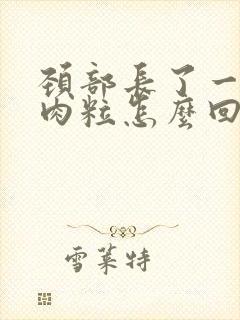 頸部長了一
肉粒怎麼回
雪萊特